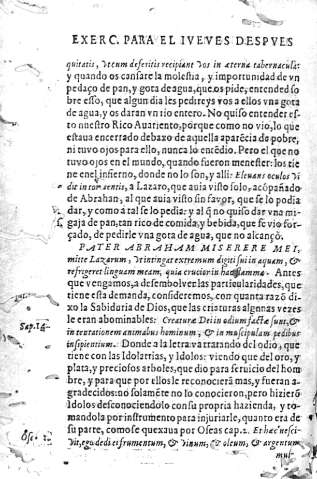 EXERC. PARA EL IVEVES DESPVES
quitatis, vt cum defeceritis recipiant vos in æterna tabernacula:
y quando os cansare la molestia, y importunidad de vn
pedaço de pan, y gota de agua, que os pide, entended so
bre esso, que algun dia les pedireys vos a ellos vna gota
de agua, y os daran vn rio entero. No quiso entender es-
to nuestro Rico Auariento, porque como no vio, lo que
estaua encerrado debaxo de aquella aparēcia de pobre,
ni tuvo ojos para ello, nunca lo entēdio. Pero el que no
tuvo ojos en el mundo, quando fueron menester: los tie
ne en el infierno, donde no lo son, y alli: Eleuans oculos vi
die in tormentis, a Lazaro, que auia visto solo, acōpañado
de Abrahan, al que auia visto sin fauor, que se lo podia
dar, y como a tal se lo pedia: y al q̄ no quiso dar vna mi-
gaja de pan, tan rico de comida, y bebida, que se vio for-
çado, de pedirle vna gota de agua, que no alcançò.
PATER ABRAHAM MISERERE MEI,
mitte Lazarum, vt intingat extremum digiti sui in aquam, &
refrigeret linguam meam, quia crucior in hac flamma. Antes
que vengamos, a desemboluer las particularidades, que
tiene esta demanda, consideremos, con quanta razō di-
xo la Sabiduria de Dios, que las criaturas algunas vezes
le eran abominables: Creaturæ Dei in odium factæ sunt, &
Sap. 14. in tentationem animabus hominum, & in muscipulam pedibus
insipientium. Donde a la letra va tratando del odio, que
tiene con las Idolatrias, y Idolos: viendo que del oro, y
plata, y preciosos arboles, que dio para seruicio del hom
bre, y para que por ellos le reconocierā mas, y fueran a-
gradecidos: no solamēte no lo conocieron, pero hizierō
Idolos desconociendolo con su propria hazienda, y to-
mandola por instrumento para injuriarle, quanto era de
su parte, como se quexaua por Oseas cap. 2. Et hæc nesci-
Ose. 2. vit, ego dedi ei frumentum, & vinum, & oleum, & argentum
mul-